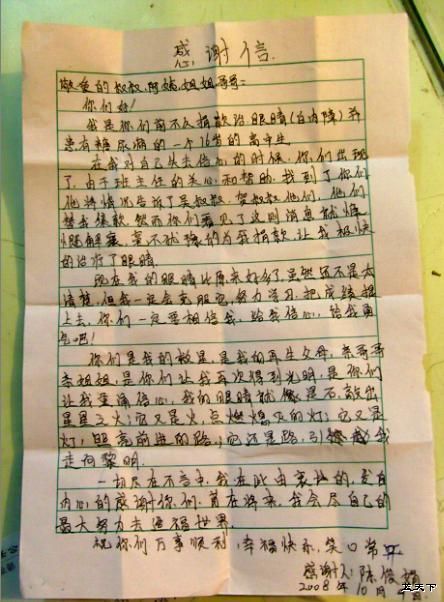 感谢信
敬爱的叔叔、阿姨、姐姐、哥哥:
你们好!
我是你们前不久捐款治眼睛(白内障)并
患有糖尿病的一个16岁的高中生.
在我对自己失去信心的时候,你们出现
了.由于班主任的关心和帮助,找到了你们
他将情况告诉了吴叔叔、贺叔叔他们,他们
替我续款.然而你们看见了这则消息就慷
慨解囊,毫不犹豫的为我捐款,让我极快
的治疗了眼睛.
现在我的眼睛比原来好多了,虽然还不是太
清楚,但我一定会克服它,努力学习,把成绩提
上去,你们一定要相信我,给我信心,给我勇
气吧!
你们是我的救星,是我的再生父母,亲哥哥
亲姐姐,是你们让我再次得到光明,是你们
让我重涌信心,我的眼睛就像是石,敲出
星星之火;它又是火,点燃熄灭的灯;它又是
灯,照亮前进的路;它还是路,引 我
走向黎明.
一切尽在不言中,我在此由衷地的,发自
内心的感谢你们,着在将来,我会尽自己的
最大努力去造福世界.
祝你们万事顺利,幸福快乐,笑口常开
感谢人:陈俊
2008年10月
蓝天下